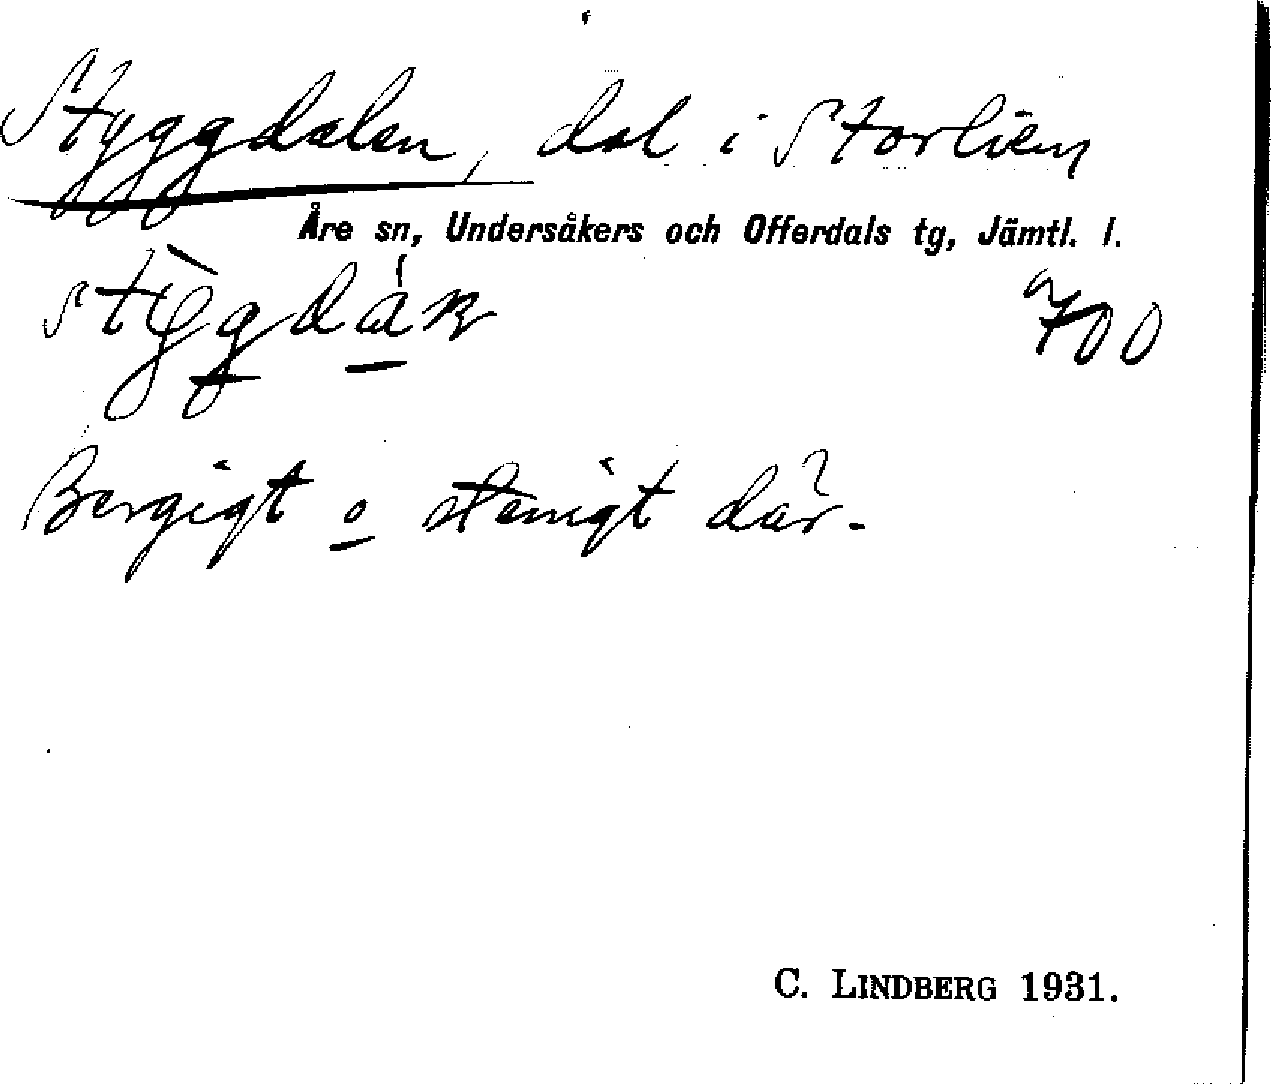 Styggdalen, dal i Storlien
Åre sn, Undersåkers och Offerdals tg, Jämtl. l.
700
Bergigt o stenigt där.
C. LINDBERG 1931.